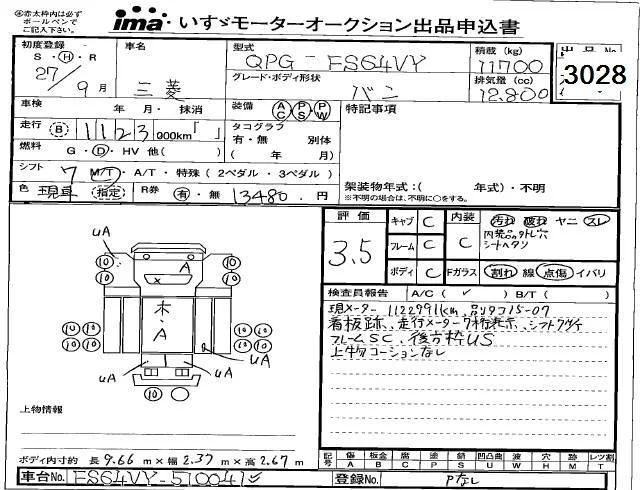 ㊟赤太枠内は必ず
ボールペンで
ご記入下さい。
ima いすゞモーターオークション出品申込書
初度登録 S・H・R 27/9月
車名 三菱
型式 QPG-FS64VY
積載(kg) 11700
グレード・ボディ形状 バン
排気量(cc) 12.800
出品No. 3028
車検 年 月・抹消
装備 AC PS PW
特記事項
走行 B 1123 000km「 」
タコグラフ 有・無 別体 ( 年 月)
燃料 G・D・HV 他( )
シフト 7 M/T・A/T・特殊(2ペダル・3ペダル)
色 現車 指定
R券 有・無 13480.円
架装物年式:( 年式)・不明
※不明の場合は、不明に○をする。
評価 3.5
キャブ C
フレーム C
ボディ C
内装 C
汚れ 破れ ヤニ スレ
内装品外レ穴
シートヘタリ
Fガラス 割れ 線 点傷 イバリ
検査員報告 A/C(✓) B/T( )
現メーター 1122991km、品リタコ15-07
看板跡、走行メーター7桁表示、シフトグサイ
フレームSC、後方枠US
上物コーションなし
uA
A
X
木
A
uA
uA
uA
10 10 10 10
10 10 10 10
10 10 10 10
10
上物情報
ボディ内寸約 長9.66m×幅2.37m×高2.67m
記号 傷A 板金B 腐C 塗P 錆S 凹凸曲U 波W 穴H 跡M レツ割T
車台No. FS64VY-510041
登録No. Pなし